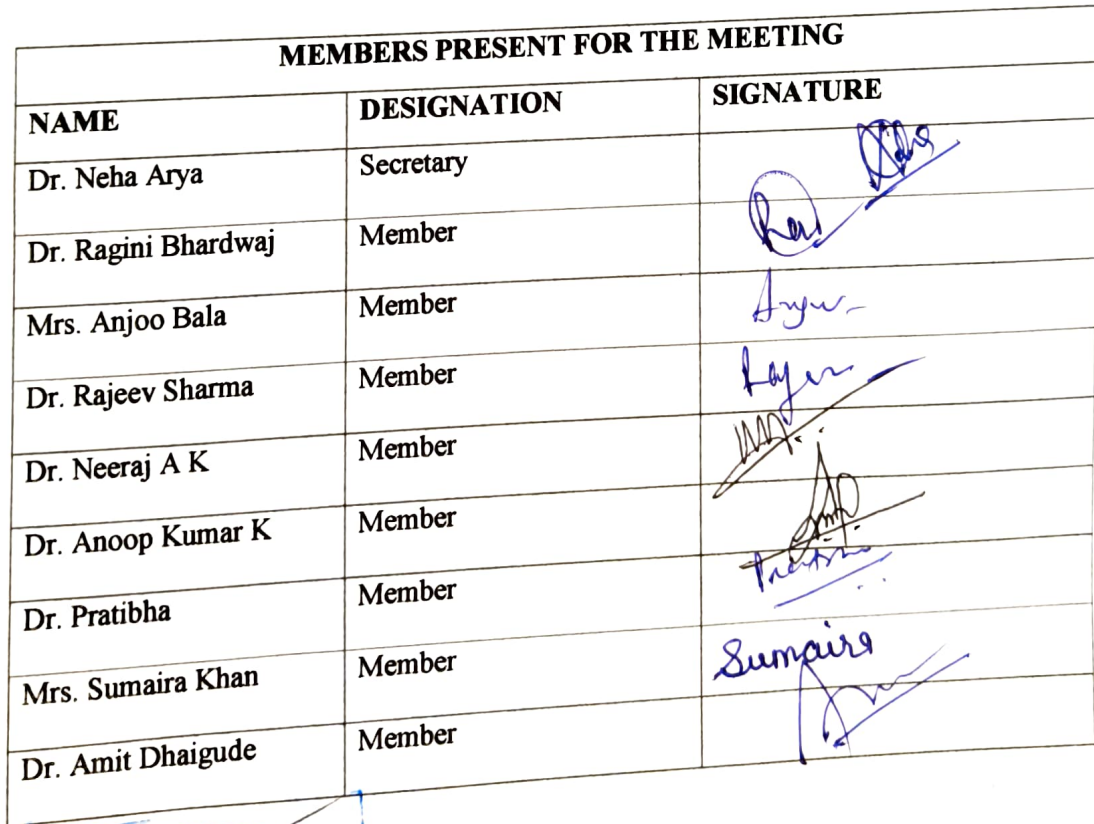 MEMBERS PRESENT FOR THE MEETING
NAME DESIGNATION SIGNATURE
Dr. Neha Arya Secretary
Dr. Ragini Bhardwaj Member
Mrs. Anjoo Bala Member
Dr. Rajeev Sharma Member
Dr. Neeraj A K Member
Dr. Anoop Kumar K Member
Dr. Pratibha Member
Mrs. Sumaira Khan Member Sumaira
Dr. Amit Dhaigude Member